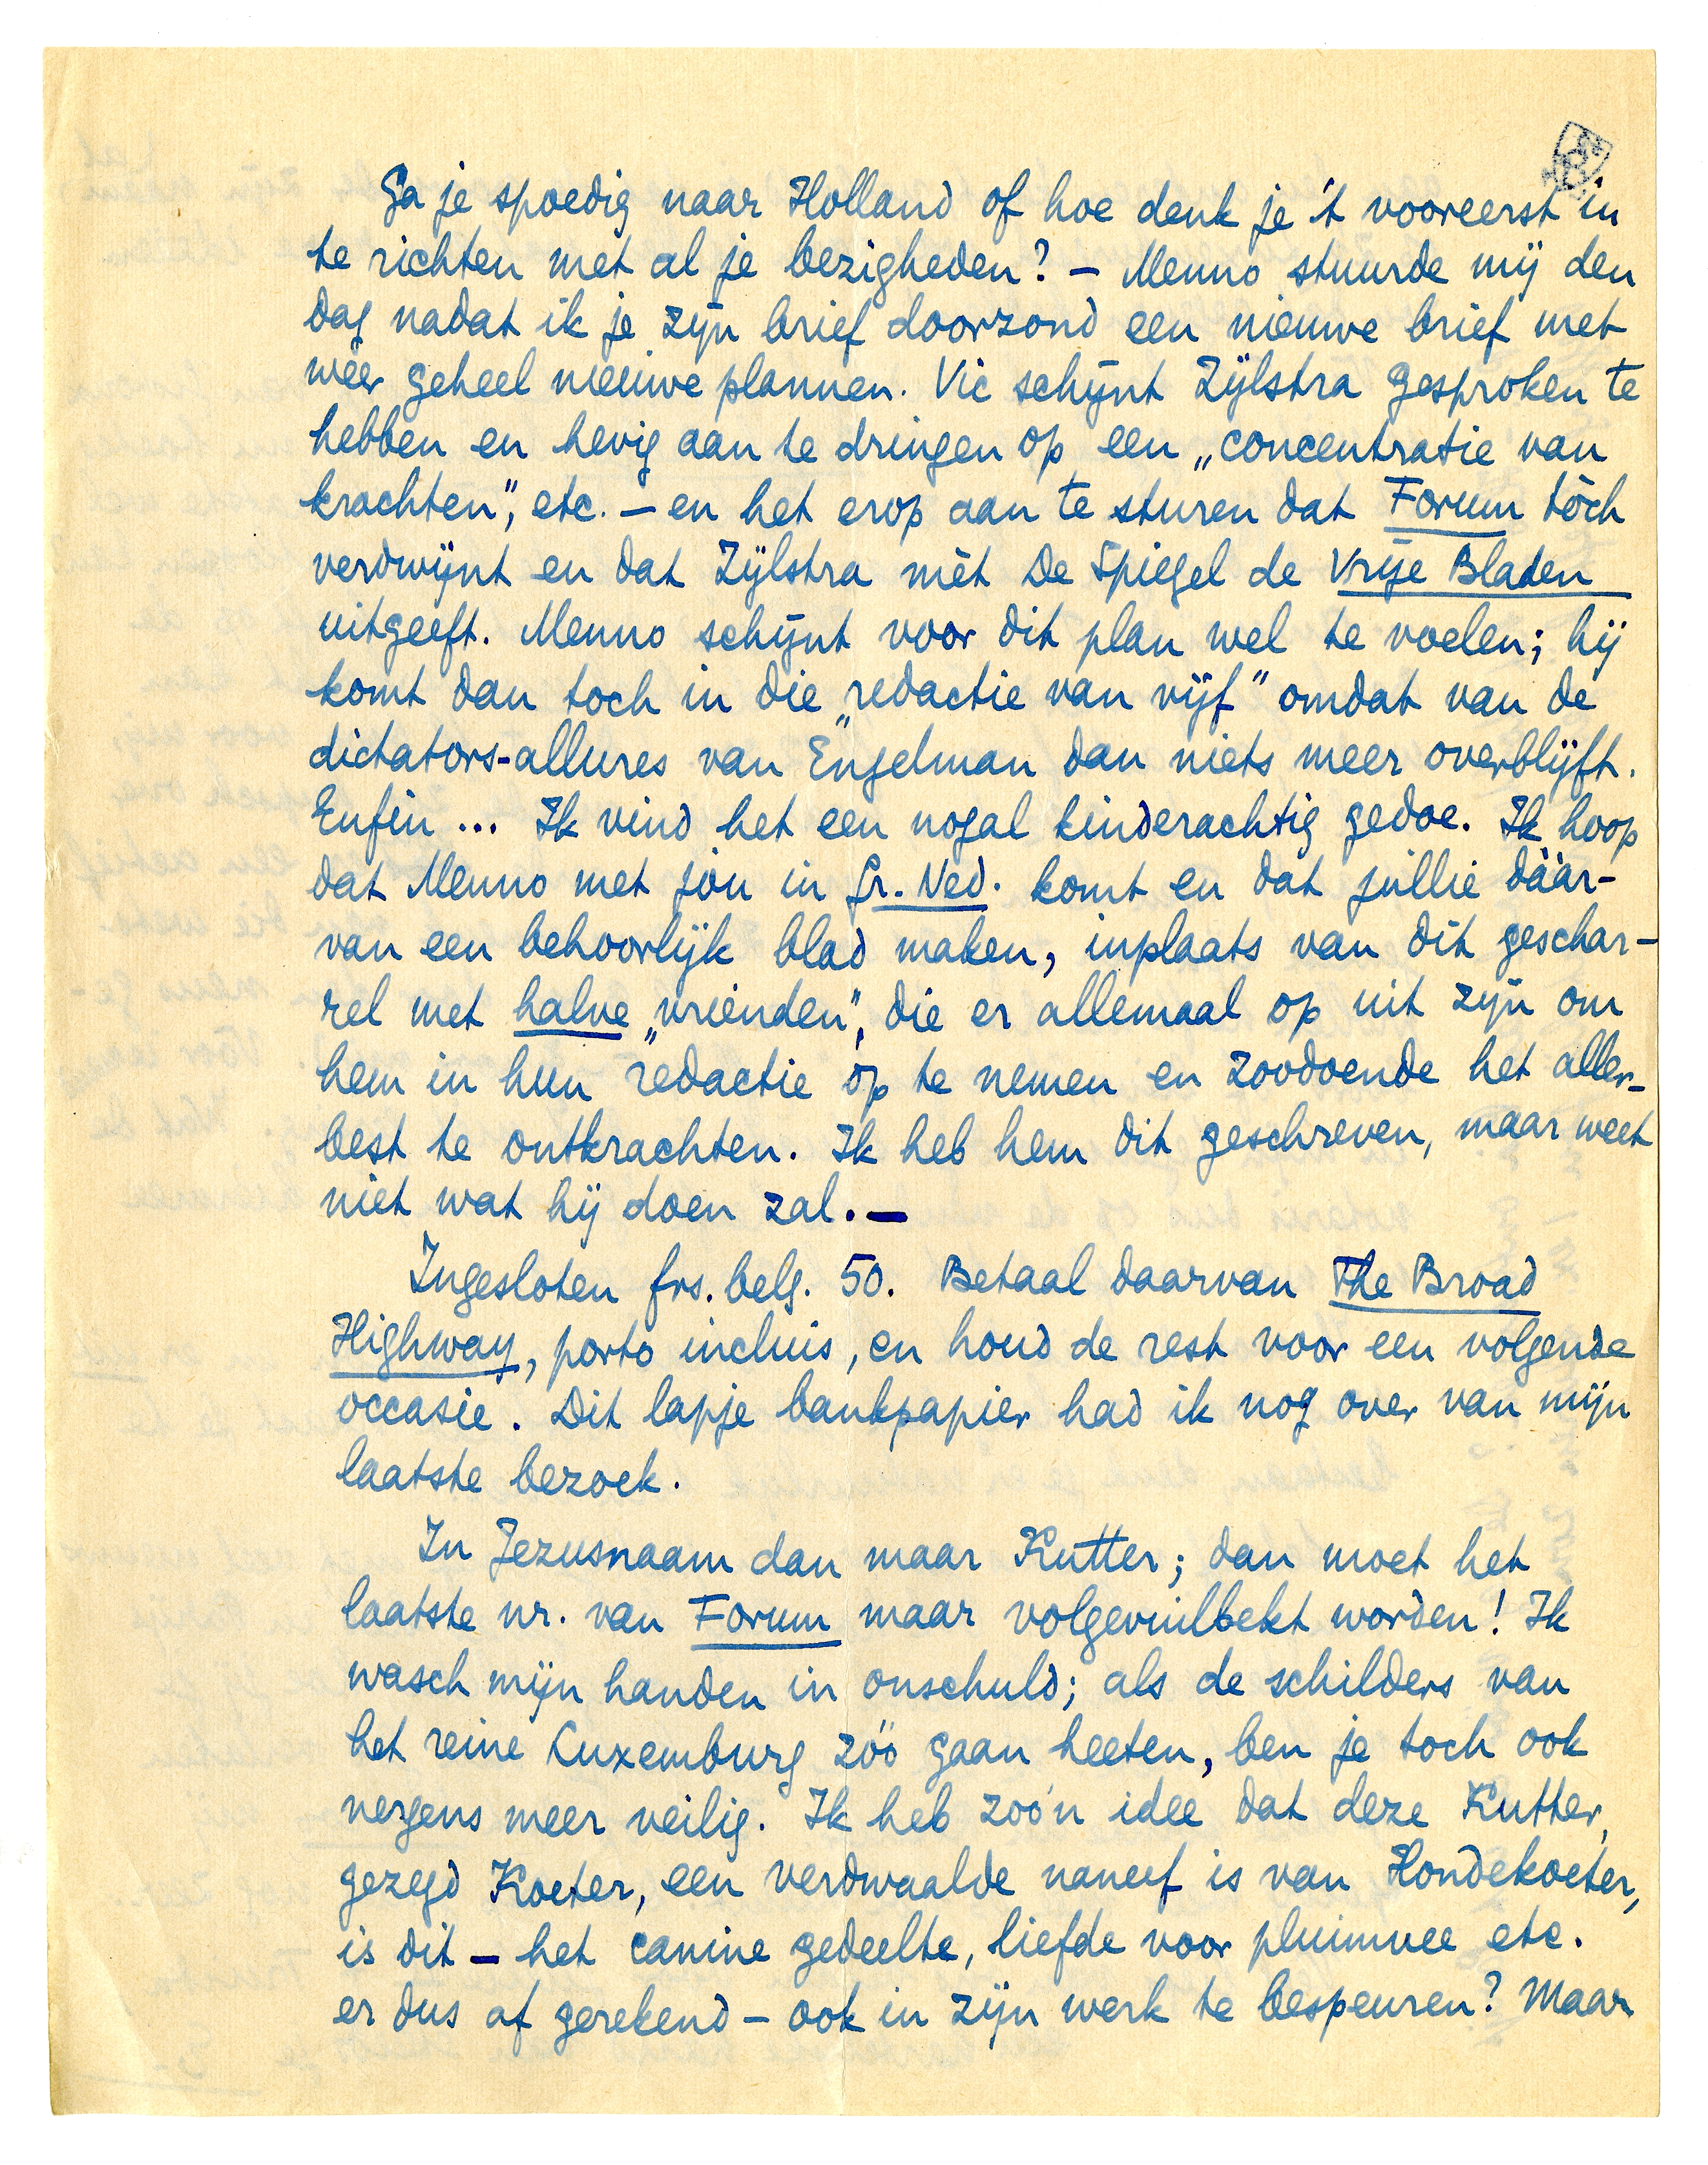 Ga je spoedig naar Holland of hoe denk je 't vooreerst in
te richten met al je bezigheden? – Menno stuurde mij den
dag nadat ik je zijn brief doorzond een nieuwe brief met
wéér geheel nieuwe plannen. Vic schijnt Zijlstra gesproken te
hebben en hevig aan te dringen op een „concentratie van
krachten", etc. – en het erop aan te sturen dat Forum tòch
verdwijnt en dat Zijlstra mèt De Spiegel de Vrije Bladen
uitgeeft. Menno schijnt voor dit plan wel te voelen; hij
komt dan toch in die „redactie van vijf" omdat van de
dictators-allures van Engelman dan niets meer overblijft.
Enfin ... Ik vind het een nogal kinderachtig gedoe. Ik hoop
dat Menno met jòu in Gr. Ned. komt en dat jullie dáár-
van een behoorlijk blad maken, inplaats van dit geschar-
rel met halve „vrienden", die er allemaal op uit zijn om
hem in hun redactie òp te nemen en zoodoende het aller-
best te ontkrachten. Ik heb hem dit geschreven, maar weet
niet wat hij doen zal. –
Ingesloten frs. belg. 50. Betaal daarvan The Broad
Highway, porto incluis, en houd de rest voor een volgende
occasie. Dit lapje bankpapier had ik nog over van mijn
laatste bezoek.
In Jezusnaam dan maar Kutter; dan moet het
laatste nr. van Forum maar volgevuilbekt worden! Ik
wasch mijn handen in onschuld; als de schilders van
het reine Luxemburg zóó gaan heeten, ben je toch ook
nergens meer veilig. Ik heb zoo'n idee dat deze Kutter,
gezegd Koeter, een verdwaalde naneef is van Hondekoeter,
is dit – het canine gedeelte, liefde voor pluimvee etc.
er dus af gerekend – ook in zijn werk te bespeuren? Maar